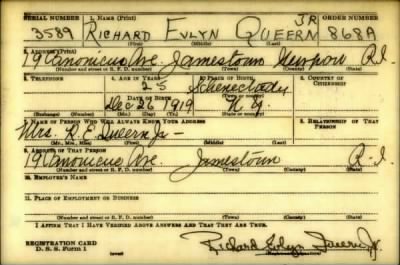 SERIAL NUMBER 1. NAME (Print) ORDER NUMBER
3R
3589 RICHARD EVLYN QUEERN 868A
(First) (Middle) (Last)
2. ADDRESS (Print)
19 Canonicus Ave. Jamestown Newport R.I.
(Number and street or R. F. D. number) (Town) (County) (State)
3. TELEPHONE 4. AGE IN YEARS 5. PLACE OF BIRTH 6. COUNTRY OF CITIZENSHIP
25 Schenectady
(Town or county)
DATE OF BIRTH
Dec 26 1919 N.Y.
(Exchange) (Number) (Mo.) (Day) (Yr.) (State or country)
7. NAME OF PERSON WHO WILL ALWAYS KNOW YOUR ADDRESS 8. RELATIONSHIP OF THAT PERSON
Mrs. R.E. Queern Jr -
(Mr., Mrs., Miss) (First) (Middle) (Last)
9. ADDRESS OF THAT PERSON
19 Canonicus Ave. Jamestown R.I.
(Number and street or R. F. D. number) (Town) (County) (State)
10. EMPLOYER'S NAME
11. PLACE OF EMPLOYMENT OR BUSINESS
(Number and street or R. F. D. number) (Town) (County) (State)
I AFFIRM THAT I HAVE VERIFIED ABOVE ANSWERS AND THAT THEY ARE TRUE.
REGISTRATION CARD
D. S. S. Form 1
Richard Evlyn Queern Jr.